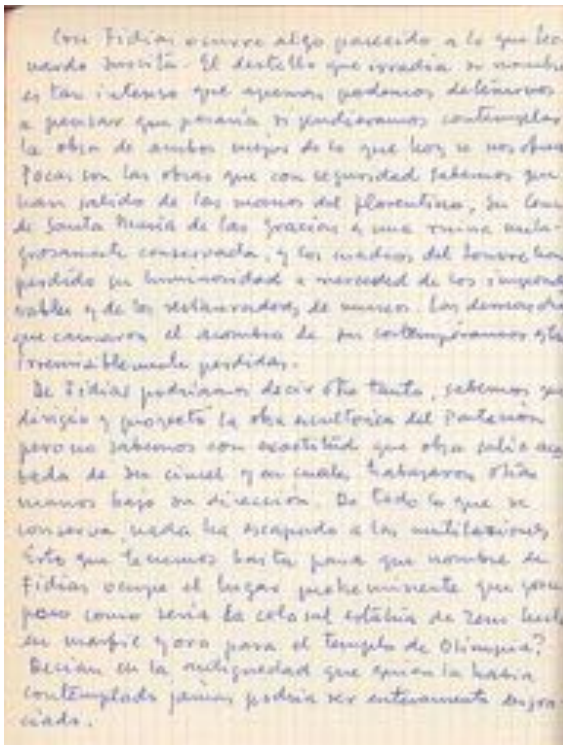 Con Fidias ocurre algo parecido a lo que Leo
nardo suscita. El destello que irradia su nombre
es tan intenso que apenas podemos detenernos
a pensar que pasaría si pudieramos contemplar
la obra de ambos mejor de lo que hoy se nos ofrece
Pocas son las obras que con seguridad sabemos que
han salido de las manos del florentino, su Cena
de Santa María de las Gracias es una ruina mila-
grosamente conservada, y los cuadros del Louvre han
perdido su luminosidad a merced de los
y de los restauradores de museos. Las demas
que causaron el asombro de sus contemporaneos
irremisiblemente perdidas.
De Fidias podriamos decir otro tanto, sabemos que
dirigio y proyectó la obra escultorica del Partenon
pero no sabemos con exactitud que obra salio aca
bada de su cincel y en cuales trabajaron otras
manos bajo su dirección. De todo lo que se
conserva, nada ha escapado a las mutilaciones
Esto que tenemos basta para que nombre de
Fidias ocupe el lugar que
pero como seria la colosal estatua de Zeus hecha
en marfil y oro para el templo de Olimpia?
Decian en la antiguedad que quien la habia
contemplado jamas podria ser enteramente desgra
ciado.